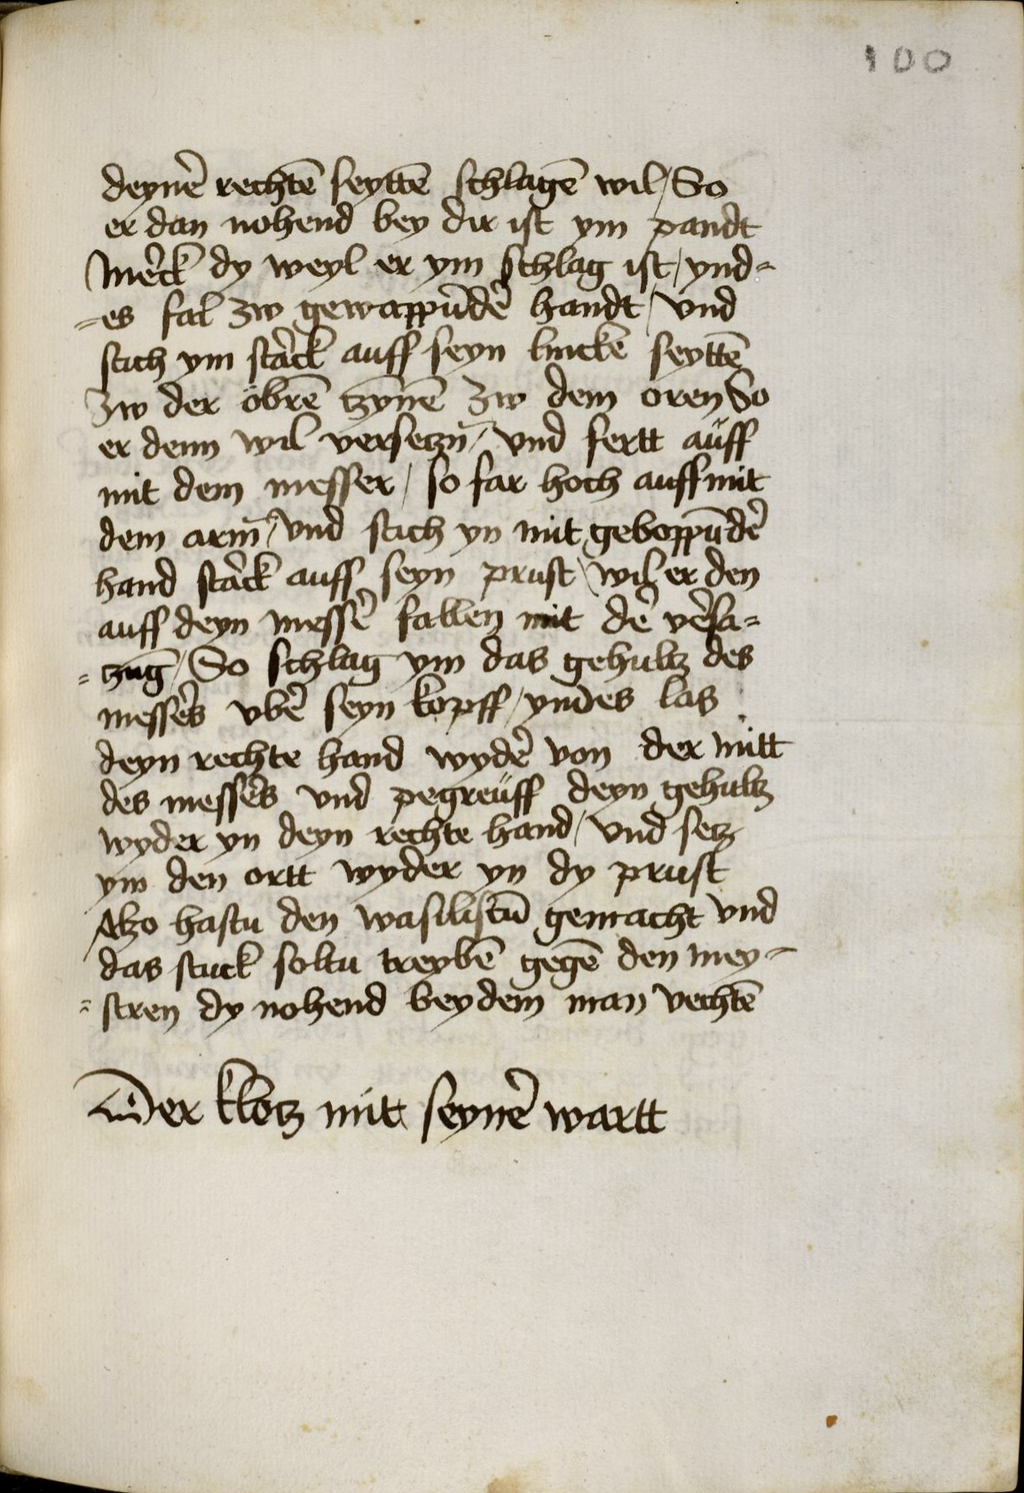 100
deynē rechtē seyttē schlagē wil / So
er dan nohend bey dir ist ym pandt
Mērck dy weyl er ym schlag ist / ynd-
-es fal zw gewappūdē handt / vnd
stich ym stārck auff seyn lincke seyttē
Zw der öbrē tzynnē Zw dem oren So
er denn wil versetzn̄ / vnd fertt aüff
mit dem messer / so far hoch auff mit
dem arm̄ / vnd stich yn mit geboppūdē
hand stārck auff seyn prust / wil er den
auff deyn messē fallen mit dē vēsa-
-tzūg / So schlag ym das gehultz des
messēs vbē seyn kopff / yndes las
deyn rechte hand wydē von der mitt
des messērs vnd pegreüff deyn gehultz
wyder yn deyn rechte hand / vnd setz
ym den ortt wyder yn dy prust
Alzo hastu den wasilistū gemacht vnd
das stuck soltu treybē gegē den mey-
-stren dy nohend bey dem man vechtē
Der klotz mit seynē wartt